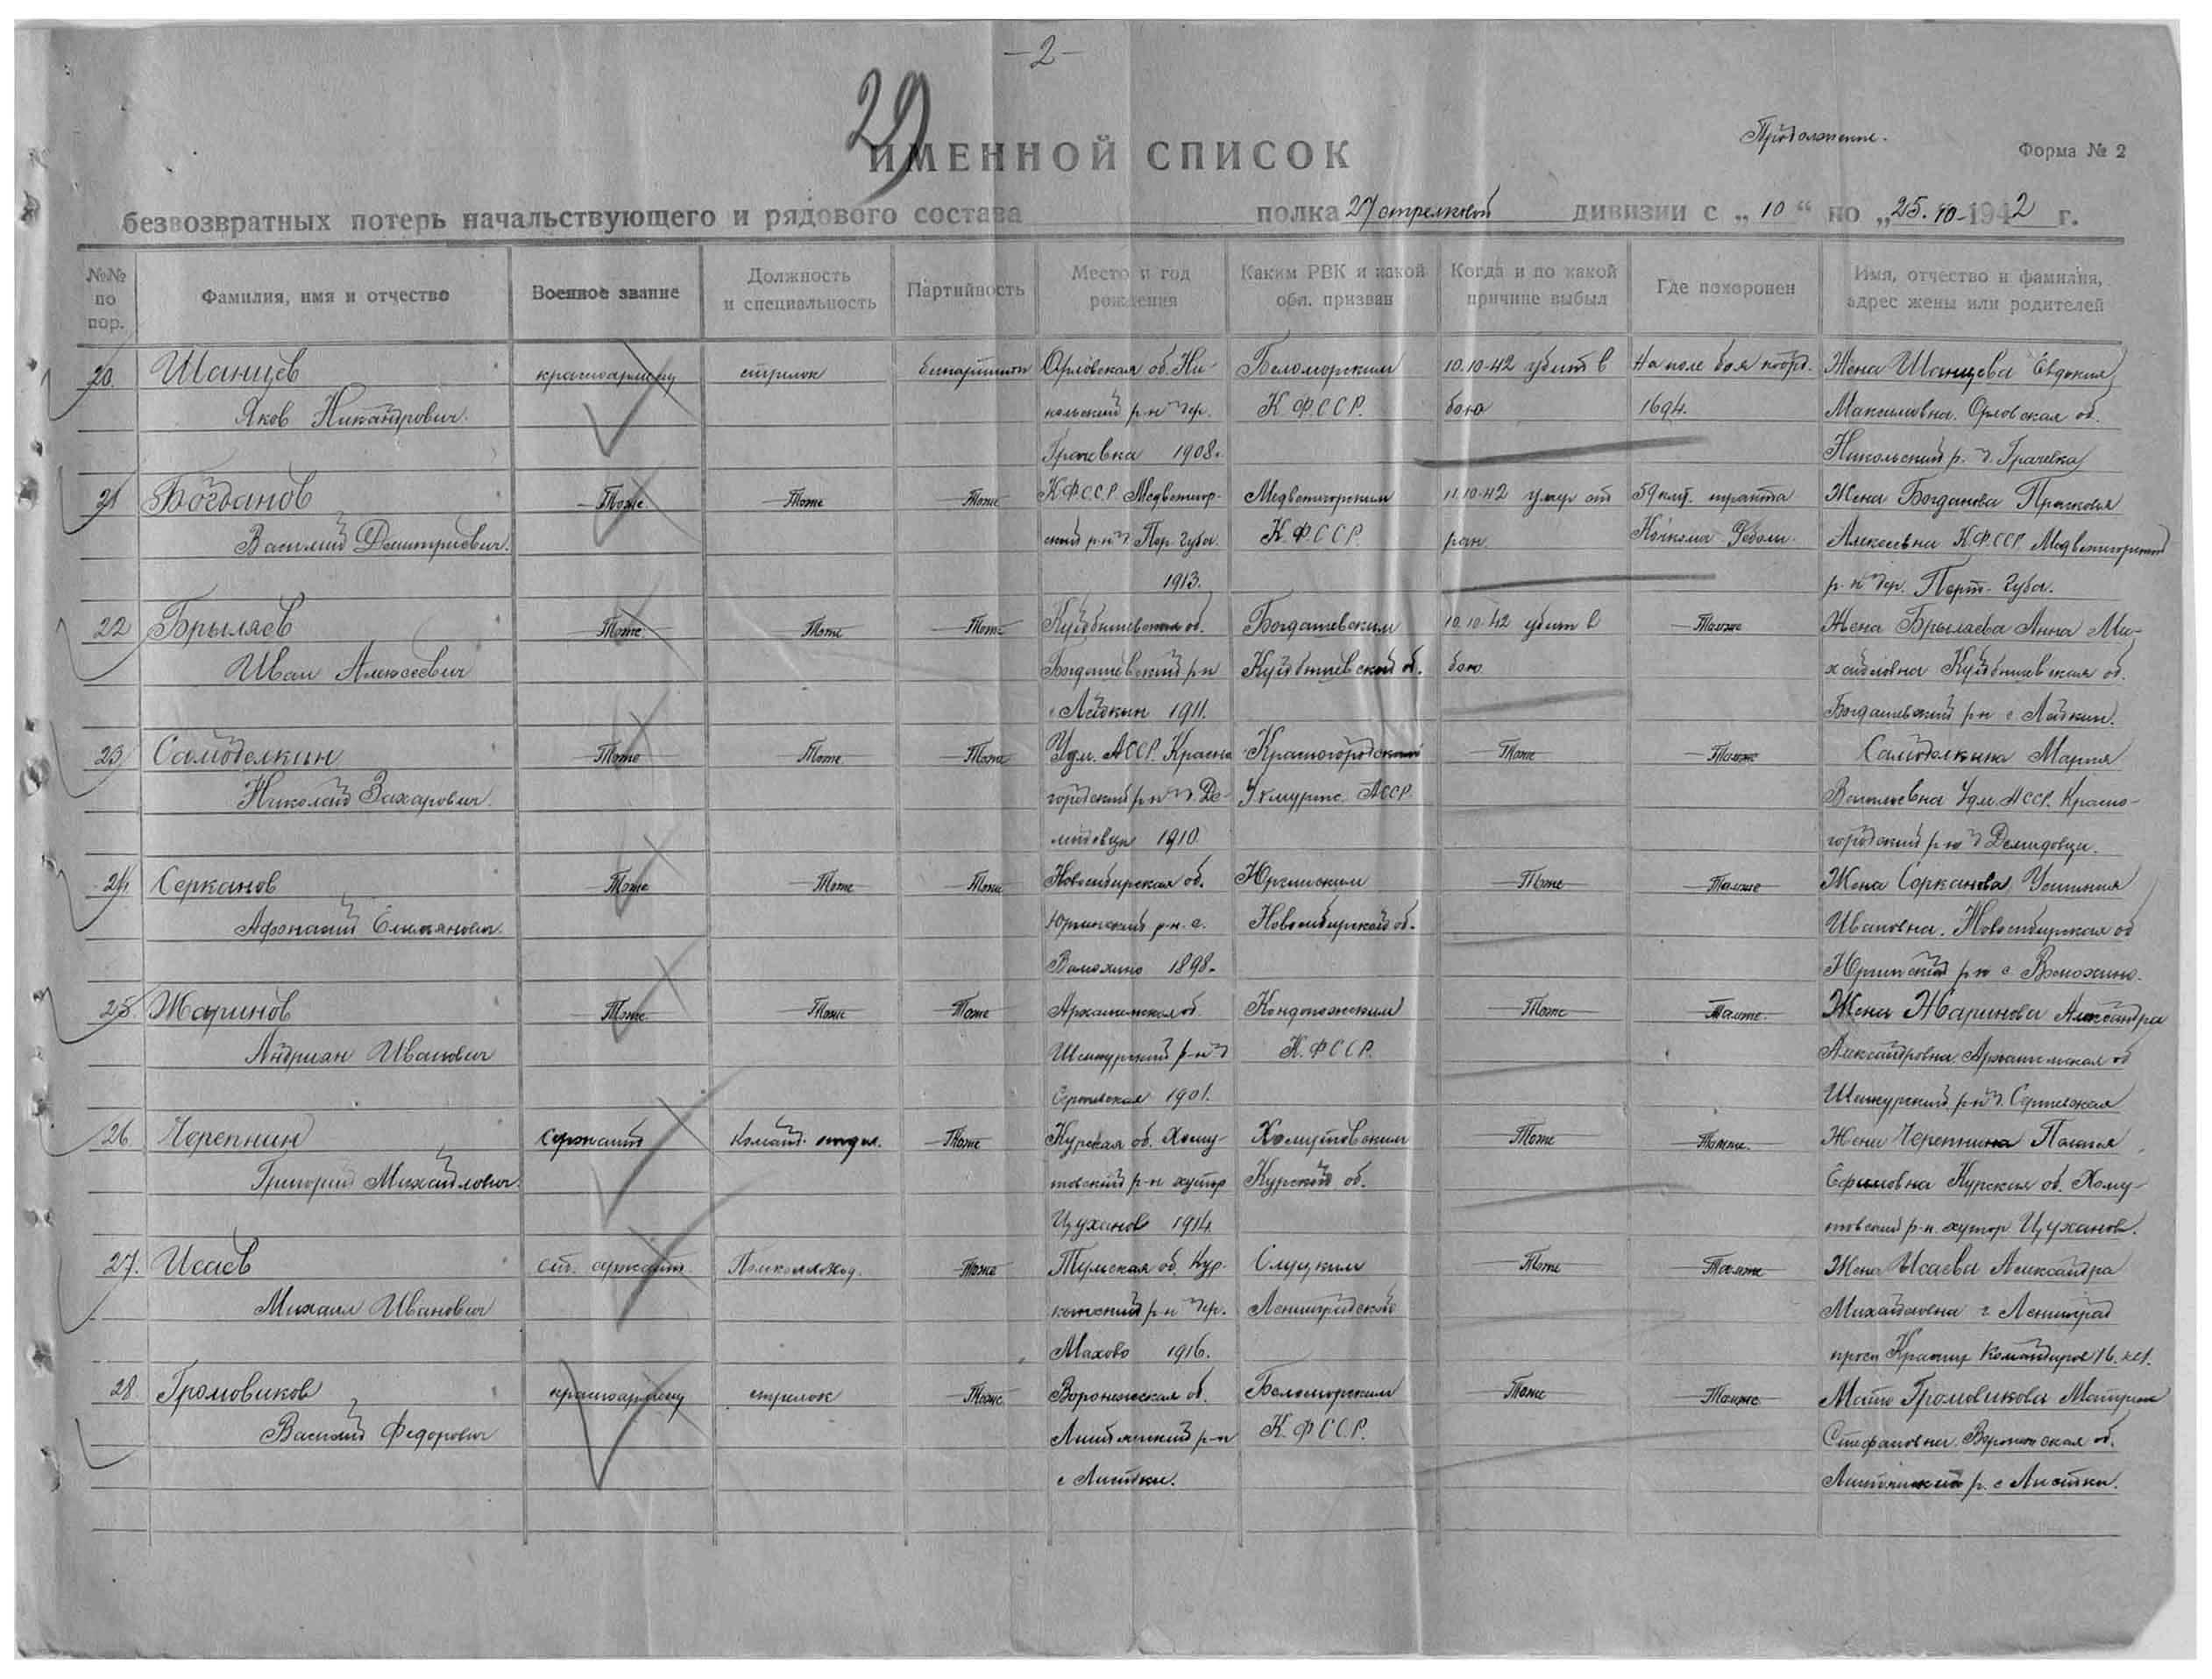 - 2 -
29
Продолжение.
ИМЕННОЙ СПИСОК
Форма № 2
безвозвратных потерь начальствующего и рядового состава полка 27 стрелковой дивизии с „ 10 “ по „ 25.10-1942 г.
№№ по пор.
Фамилия, имя и отчество
Военное звание
Должность и специальность
Партийность
Место и год рождения
Каким РВК и какой обл. призван
Когда и по какой причине выбыл
Где похоронен
Имя, отчество и фамилия, адрес жены или родителей
20. Шанцев красноармеец стрелок беспартийн Орловская об. Ни- Беломорским 10.10-42 убит в На поле боя коорд. Жена Шанцева Евдокия
Яков Никандрович. кольский р-н дер. К.Ф.С.С.Р. бою 1694. Максимовна. Орловская об.
Грачевка 1908. Никольский р. д. Грачевка
21 Богданов Тоже Тоже Тоже К.Ф.С.С.Р. Медвежегор- Медвежегорским 11.10-42 умер от 59 клм. тракта Жена Богданова Прасковья
Василий Дмитриевич. ский р-н д. Пер. Губа. К.Ф.С.С.Р. ран. Кочкома Реболы. Алексеевна К.Ф.ССР. Медвежегорский
1913. р-н дер. Губа.
22 Брыляев Тоже Тоже Тоже Куйбышевская об. Богдашевским 10.10-42 убит в Тамже Жена Брыляева Анна Ми-
Иван Алексеевич Богдашевский р-н Куйбышевской об. бою хайловна Куйбышевская об.
с Лайкин 1911. Богдашевский р-н с Лайкин.
23 Самоделкин Тоже Тоже Тоже Удм. АССР. Красно Красногородским Тоже Тамже Самоделкина Мария
Николай Захарович. городский р-н д. Де- Удмуртс. АССР. Васильевна Удм. АССР. Красно-
мидовцы 1910. городский р-н д Демидовцы.
24 Серканов Тоже Тоже Тоже Новосибирская об. Юргинским Тоже Тамже Жена Серканова Устиния
Афонасий Емельянович. Юргинский р-н. с. Новосибирской об. Ивановна. Новосибирская об
1898. Юргинский р-н с
25. Жаринов Тоже Тоже Тоже Архангельская об. Кондопожским Тоже Тамже. Жена Жаринова Александра
Андриан Иванович Шенкурский р-н д К.Ф.ССР. Александровна. Архангельская об
Сергиевская 1901. Шенкурский р-н д. Сергиевская
26 Черепнин Сержант команд. отдел. Тоже Курская об. Хому- Хомутовским Тоже Тамже. Жена Черепнина
Григорий Михайлович. товский р-н хутор Курской об. Ефимовна Курская об. Хому-
Цуханов 1914. товский р-н. хутор Цуханов.
27. Исаев ст. сержант Помкомвзвод. Тоже об. Кур- Слуцким Тоже Тамже Жена Исаева Александра
Михаил Иванович р-н дер. Ленинградской Михайловна г Ленинград
Махово 1916. просп Красных Командиров 16. кв1.
28 Громовиков красноармеец стрелок Тоже Воронежская об. Беломорским Тоже Тамже Мать Громовикова Матрена
Василий Федорович р-н К.Ф.С.С.Р. Стефановна. Воронежская об.
с р. с